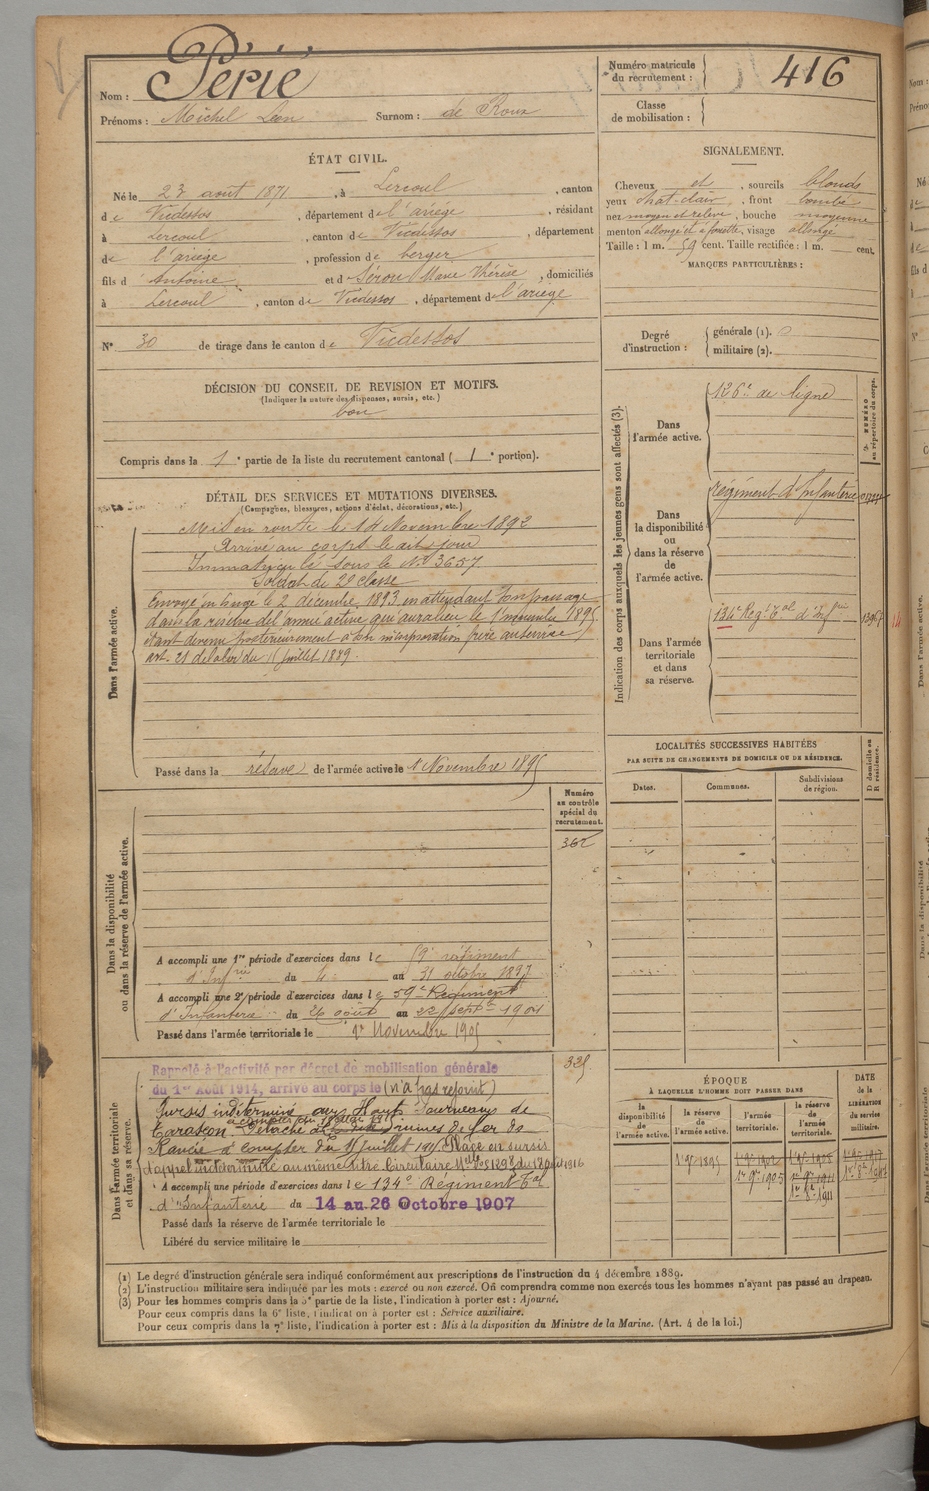 Nom : Périé
Prénoms : Michel Léon Surnom : de Roux
Numéro matricule du recrutement : 416
Classe de mobilisation :
ÉTAT CIVIL.
Né le 23 août 1871, à Lercoul, canton
de Vicdessos, département de l'ariège, résidant
à Lercoul, canton de Vicdessos, département
de l'ariège, profession de berger
fils d'Antoine et de Séron Marie Thérèse, domiciliés
à Lercoul, canton de Vicdessos, département de l'ariège
N° 30 de tirage dans le canton de Vicdessos
SIGNALEMENT.
Cheveux et, sourcils blonds
yeux chat-clair, front bombé
nez moyen et relevé, bouche moyenne
menton allongé et à fossette, visage allongé
Taille : 1 m. 59 cent. Taille rectifiée : 1 m. cent.
MARQUES PARTICULIÈRES :
Degré d'instruction : générale (1). 0
militaire (2).
DÉCISION DU CONSEIL DE REVISION ET MOTIFS.
(Indiquer la nature des dispenses, sursis, etc.)
bon
Compris dans la 1e partie de la liste du recrutement cantonal (1e portion).
DÉTAIL DES SERVICES ET MUTATIONS DIVERSES.
(Campagnes, blessures, actions d'éclat, décorations, etc.)
Dans l'armée active.
Mis en route le 14 Novembre 1892
Arrivé au corps le dit jour
Immatriculé sous le No 3657
Soldat de 2e classe
Envoyé en congé le 2 décembre 1893 en attendant son passage
dans la réserve de l'armée active qui aura lieu le 1er novembre 1895
étant devenu postérieurement à son incorporation frère au service
art. 21 de la loi du 15 juillet 1889.
Passé dans la réserve de l'armée active le 1 Novembre 1895
Indication des corps auxquels les jeunes gens sont affectés (3).
N° NUMÉRO au répertoire du corps.
Dans l'armée active.
126e de ligne
Dans la disponibilité ou dans la réserve de l'armée active.
régiment d'Infanterie
Dans l'armée territoriale et dans sa réserve.
134e Reg.t Tal d'Infrie
LOCALITÉS SUCCESSIVES HABITÉES
PAR SUITE DE CHANGEMENTS DE DOMICILE OU DE RÉSIDENCE.
Dates. Communes. Subdivisions de région. D domicile ou R résidence.
Dans la disponibilité ou dans la réserve de l'armée active.
Numéro au contrôle spécial du recrutement.
362
A accompli une 1re période d'exercices dans le 59e régiment
d'Infrie du 4 au 31 octobre 1897
A accompli une 2e période d'exercices dans le 59e Régiment
d'Infanterie du 26 août au 22 septbre 1901
Passé dans l'armée territoriale le 1er Novembre 1905
Dans l'armée territoriale et dans sa réserve.
325
Rappelé à l'activité par décret de mobilisation générale
du 1er Août 1914, arrive au corps le (n'a pas rejoint)
Sursis indéterminé aux Hauts Fourneaux de
Tarascon. Détaché mines de fer de
Rancié à compter du juillet 1915 Placé en sursis
d'appel indéterminé au même titre Circulaire
A accompli une période d'exercices dans le 134e Régiment Tal
d'Infanterie du 14 au 26 Octobre 1907
Passé dans la réserve de l'armée territoriale le
Libéré du service militaire le
ÉPOQUE
À LAQUELLE L'HOMME DOIT PASSER DANS
DATE de la LIBÉRATION du service militaire.
la disponibilité de l'armée active. la réserve de l'armée active. l'armée territoriale. la réserve de l'armée territoriale.
1er 9bre 1895
1er 9bre 1905
1er 8bre 1911
(1) Le degré d'instruction générale sera indiqué conformément aux prescriptions de l'instruction du 4 décembre 1889.
(2) L'instruction militaire sera indiquée par les mots : exercé ou non exercé. On comprendra comme non exercés tous les hommes n'ayant pas passé au drapeau.
(3) Pour les hommes compris dans la 5e partie de la liste, l'indication à porter est : Ajourné.
Pour ceux compris dans la 6e liste, l'indication à porter est : Service auxiliaire.
Pour ceux compris dans la 7e liste, l'indication à porter est : Mis à la disposition du Ministre de la Marine. (Art. 4 de la loi.)